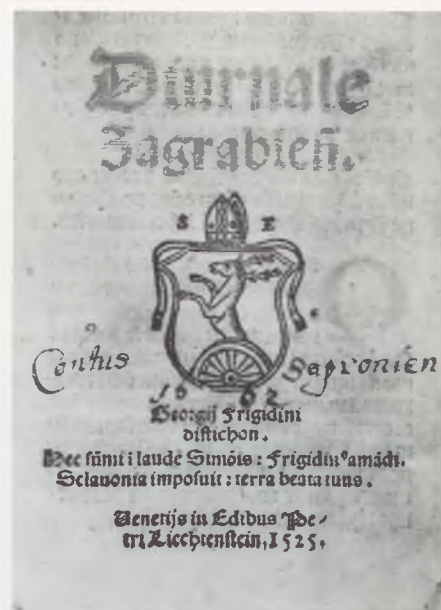 Diurnale
Zagrabień.
S E
Conv̄tus Sopronien
1662
Georgij Frigidini
distichon.
Hec sūmi i laude Simōis: Frigidin⁹ amādi.
Sclauonia imposuit: terra beata tuus.
Uenetijs in Edibus Pe⸗
tri Liechtenstein, 1525.